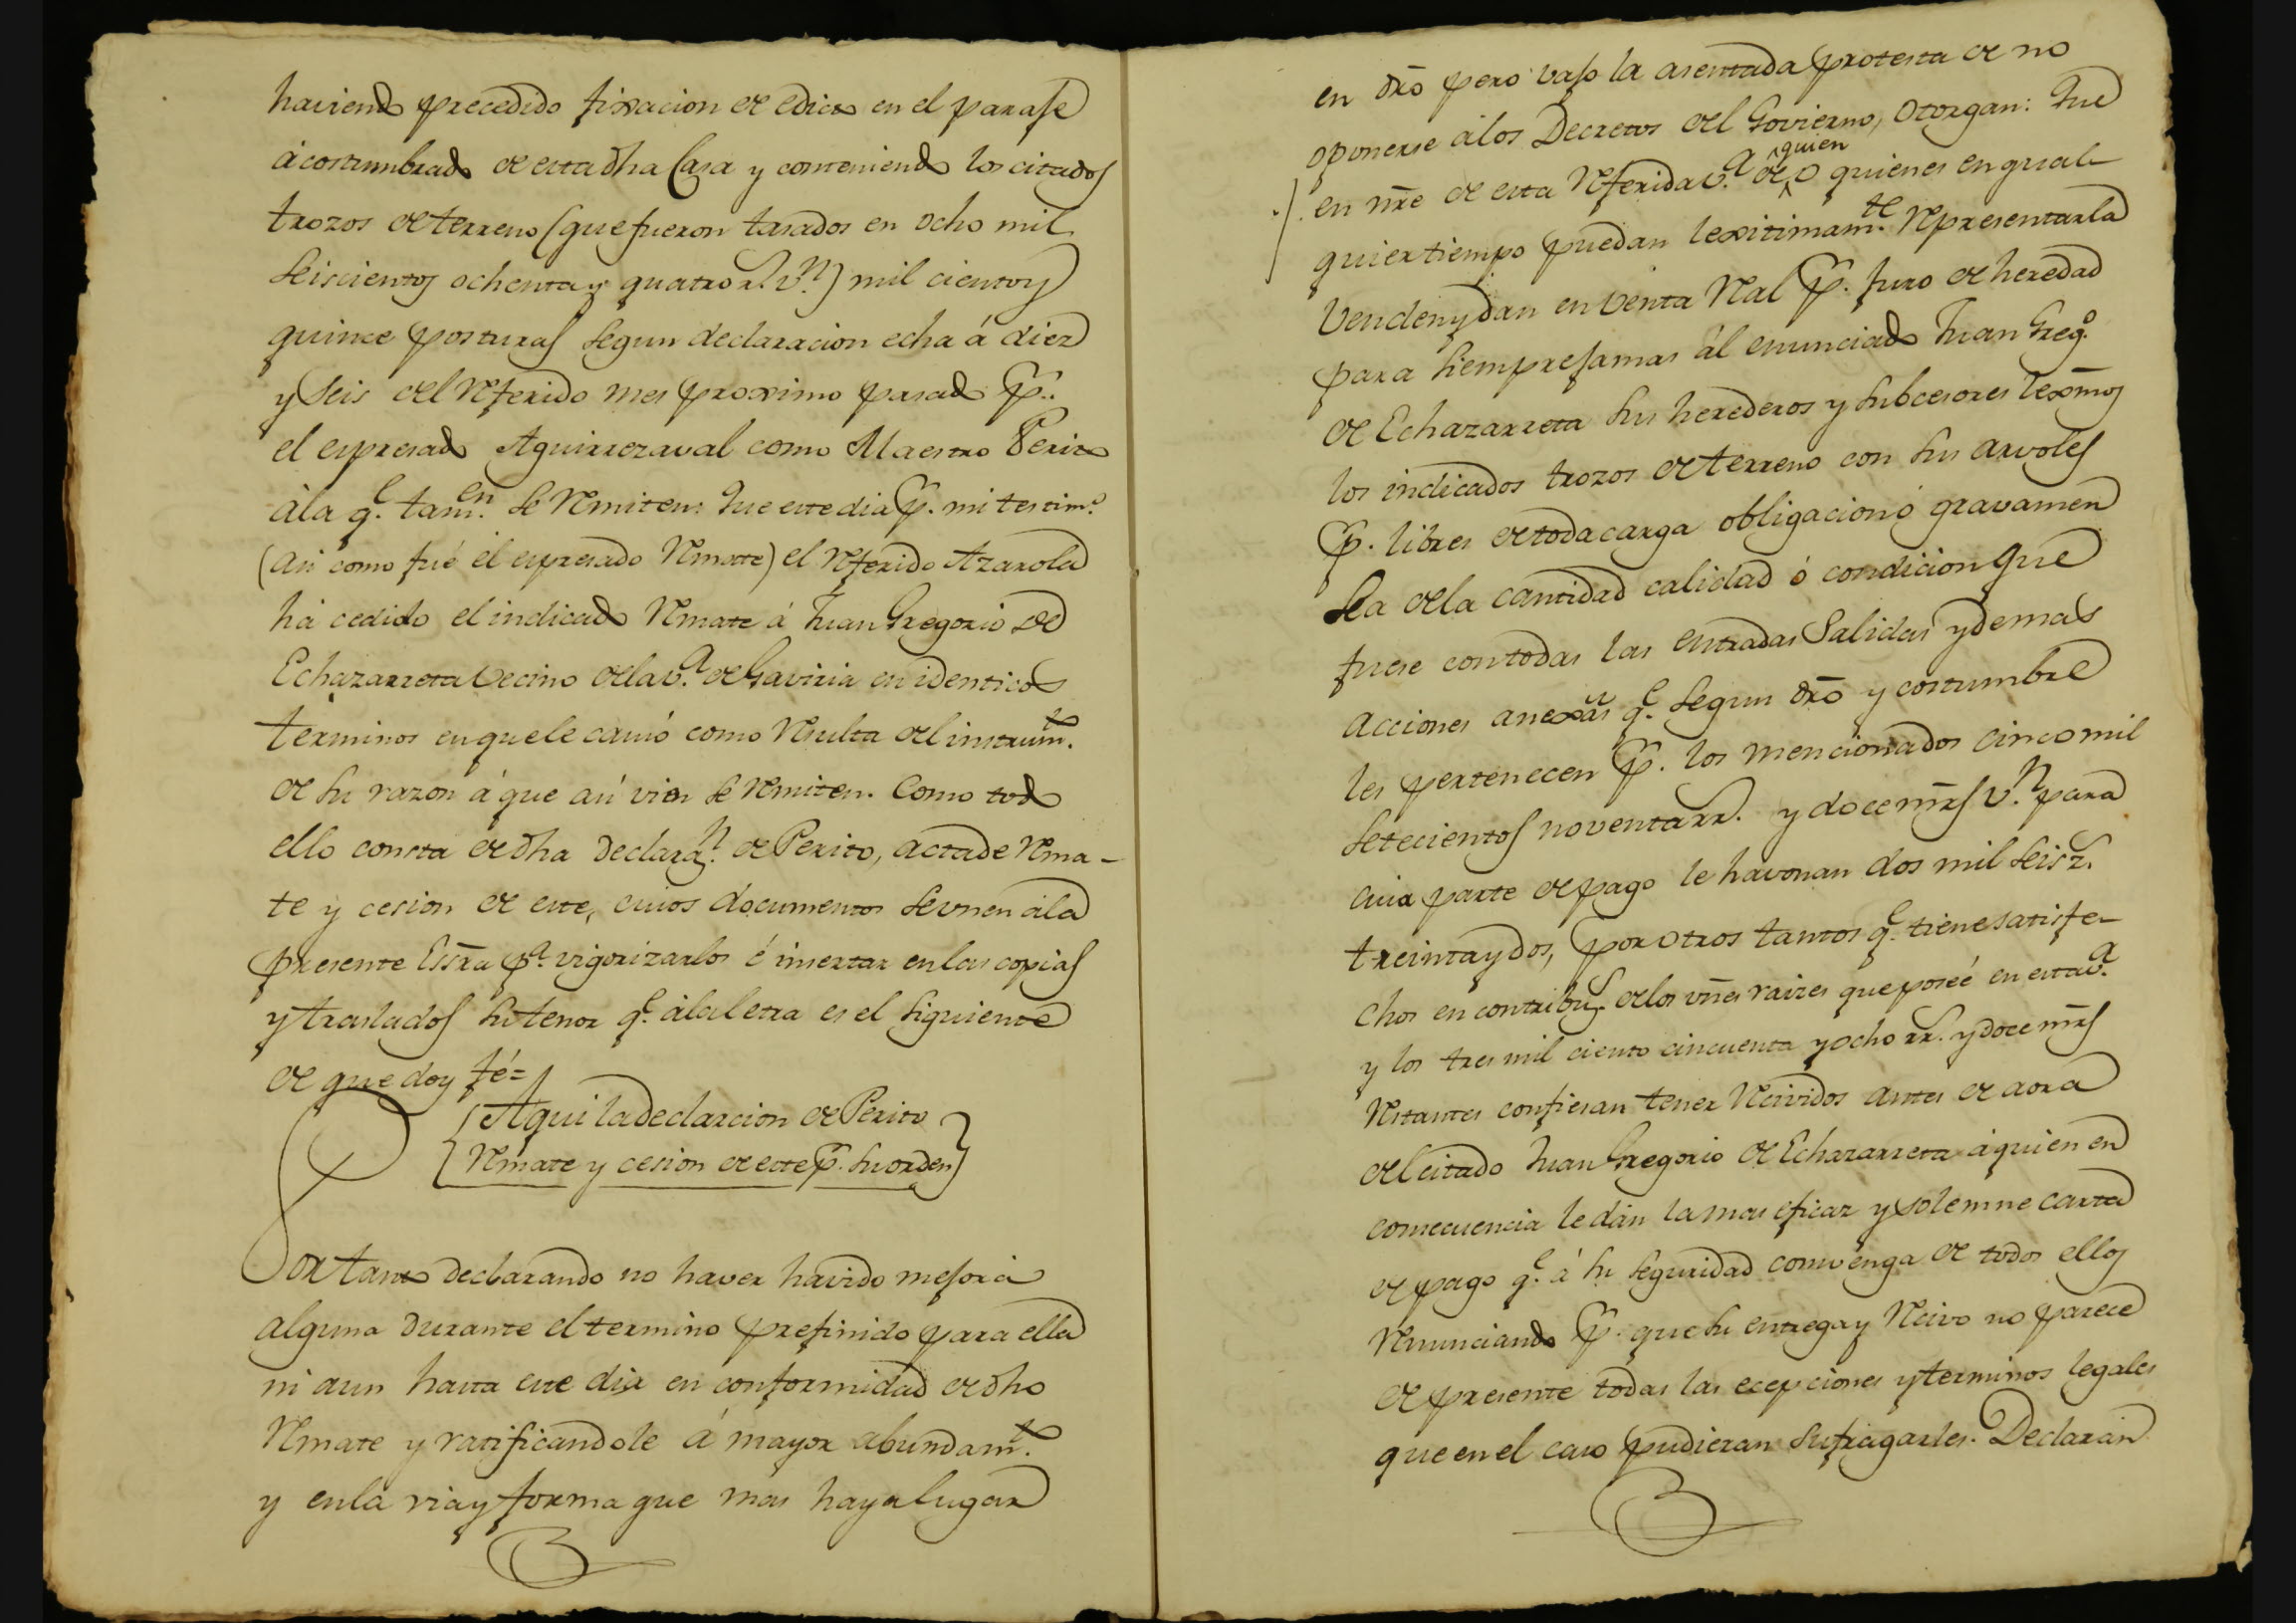 haviendo precedido fixacion de edicto en el paraje
acostumbrado de esta dha Casa y conteniendo los citados
trozos de terreno (que fueron tasados en ocho mil
seiscientos ochenta y quatro r.^s v.^n) mil ciento y
quince posturas segun declaracion echa á diez
y seis del referido mes proximo pasado p.^r
el espresado Aguirrezaval como Maestro Perito
á la q.^e tam.^en se remiten: Que este dia p.^r mi testim.^o
(asi como fué el espresado remate) el referido Azarola
há cedido el indicado remate á Juan Gregorio de
Echazarreta vecino de la v.^a de Gaviria en identicos
terminos en que le cavió como resulta del instrum.^to
de su razon á que asi vien se remiten. Como todo
ello consta de dha declarac.^n de Perito, acta de rema-
te y cesion de este, cuios documentos se unen á la
presente Essra p.^a vigorizarlos é insertar en las copias
y traslados su tenor q.^e á la letra es el siguiente
de que doy fé=
{Aqui la declarcion de Perito
remate y cesion de este p.^r su orden}
Por tanto declarando no haver havido mejora
alguna durante el termino prefinido para ella
ni aun hasta este dia en conformidad de dho
remate y ratificandole á mayor abundam.^to
y en la via y forma que mas haya lugar
en dro pero vajo la asentada protesta de no
oponerse á los Decretos del Govierno, Otorgan: Que
en nre de esta referida v.^a de ^quien O quienes en qual-
quier tiempo puedan lexitimam.^te representarla
venden y dan en venta real p.^r juro de heredad
para siempre jamas ál enunciado Juan Greg.^o
de Echazarreta sus herederos y subcesores lexmos
los indicados trozos de terreno con sus arvoles
p.^r libres de toda carga obligacion ó gravamen
sea de la cantidad calidad ó condicion que
fuese con todas las entradas salidas y demas
acciones anexas q.^e segun dro y costumbre
les pertenecen p.^r los mencionados cinco mil
setecientos noventa rr.^s y doce mrs v.^n para
cuia parte de pago le havonan dos mil seisz.^s
treinta y dos, por otros tantos q.^e tiene satisfe-
chos en contribuc.^s de los vnes raizes que poseé en esta v.^a
y los tres mil ciento cincuenta y ocho rr.^s y doce mrs
restantes confiesan tener recividos antes de aora
del citado Juan Gregorio de Echazarreta á quien en
consecuencia le dán la mas eficaz y solemne carta
de pago q.^e á su seguridad convenga de todos ellos
renunciando p.^r que su entrega y recivo no parece
de presente todas las ecepciones y terminos legales
que en el caso pudieran sufragarles. Declaran